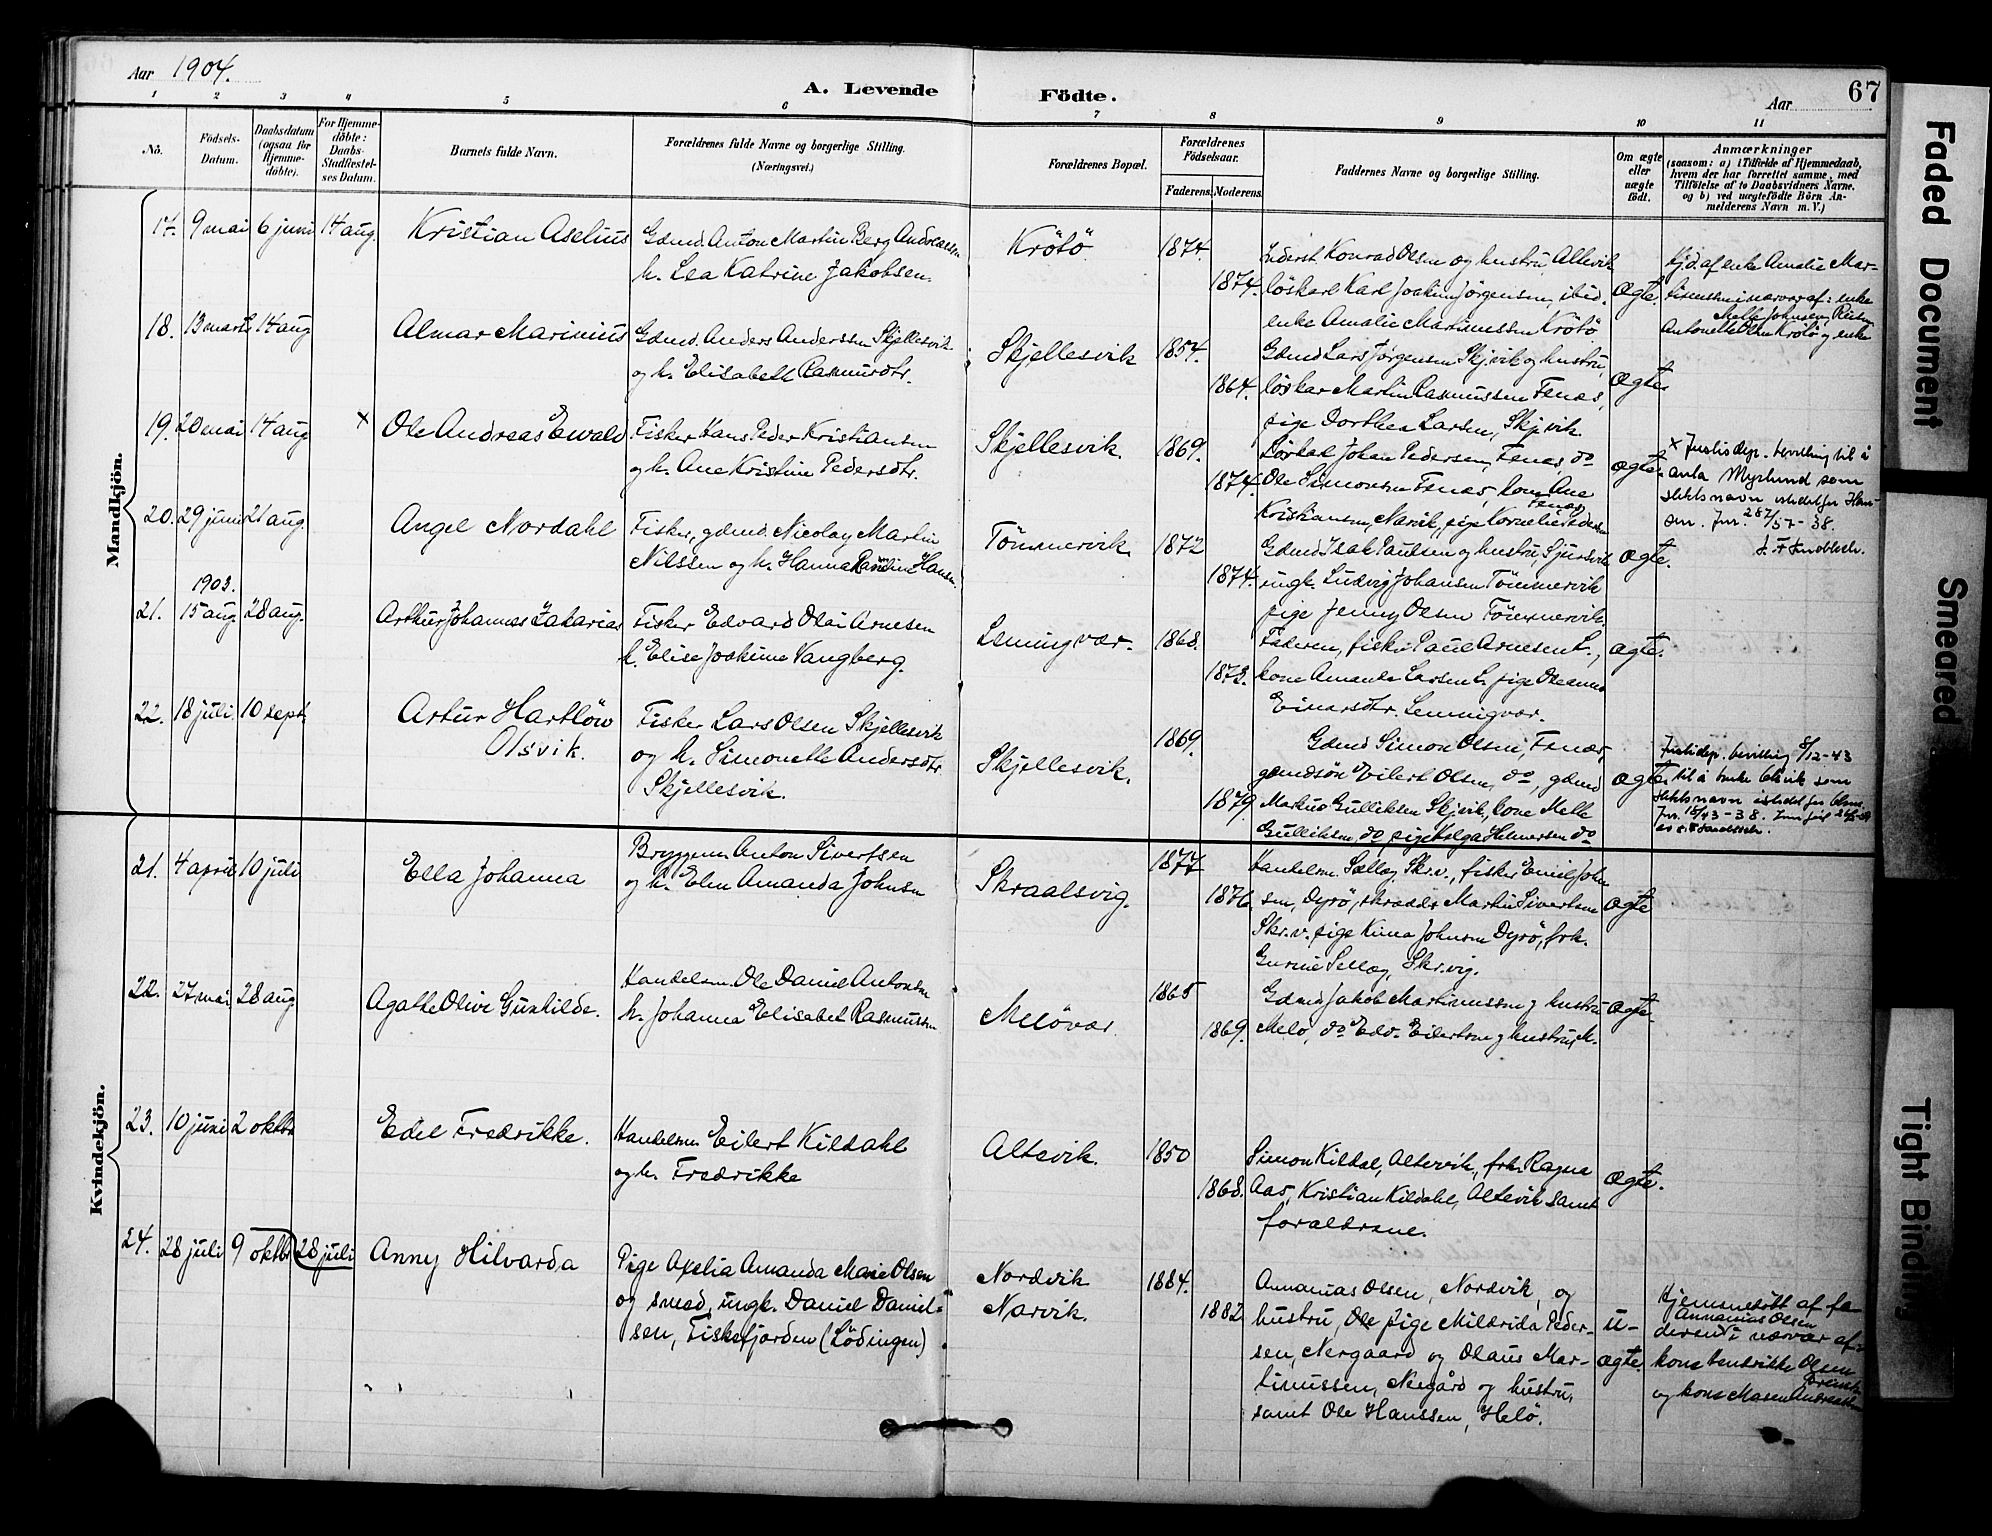 Aar 1904.
A. Levende Födte.
Aar 67
1 2 3 4 5 6 7 8 9 10 11
No.
Födsels-Datum.
Daabsdatum (ogsaa for Hjemme-döbte).
For Hjemme-döbte: Daabs-Stadfæstel-ses Datum.
Barnets fulde Navn.
Forældrenes fulde Navne og borgerlige Stilling. (Næringsvei.)
Forældrenes Bopæl.
Forældrenes Födselsaar.
Faderens. Moderens.
Faddernes Navne og borgerlige Stilling.
Om ægte eller uægte födt.
Anmærkninger
(saasom: a) i Tilfælde af Hjemmedaab, hvem der har forrettet samme, med Tilföielse af to Daabsvidners Navne, og b) ved uægtefödte Börn Anmelderens Navn m. V.)
Mandkjön.
17. 9 mai 6 juni 14 aug. Kristian Aselius
Gdmd. Anton Martin Berg Andreassen
h. Lea Katrine Jakobsen.
Krötö 1874. 1874.
Konrad Olsen og hustru, Altevik
löskarl Karl Joakim Jörgensen, ibid.
enke Amalie Martinussen Krötö
ægte.
Hjd. af enke Amalie Mar-
tinussen i nærvær af: enke
Antonette Olsen Krötö og enke
Mette Johnsen, Reisen
18. 13 marts 14 aug Almar Marinius
Gdmd. Anders Anderssen Skjellesvik
og h. Elisabeth Rasmusdtr.
Skjellesvik 1854. 1864.
Gdmd Lars Jörgensen Skj.vik og hustru,
löskar Martin Rasmussen Fenæs,
pige Dorthea Larsen, Skj.vik
ægte.
19. 20 mai 14 aug x Ole Andreas Ewald
Fisker Hans Peder Kristiansen
og h. Ane Kristine Pedersdtr.
Skjellesvik. 1869. 1874.
Löskal Johan Pedersen, Fenæs, do
Ole Simonsen Fenæs, kone Ane
Kristiansen, Narvik, pige Kornelie Pedersen
Fenæs
ægte.
x Justisdep. bevilling til å
anta Myrlund som
slektsnavn istedetfor Han-
sen. Jnr. 287/57-38.
20. 29 juni 21 aug. Angel Nordahl
Fisker, gdmd. Nicolay Martin
Nilssen og h. Hanna Hansen
Tömmervik. 1872 1874.
Gdmd Isak Paulsen og hustru,
ungk. Ludvig Johansen Tömmervik
pige Jenny Olsen Tömmervik.
ægte.
1903.
21. 15 aug 28 aug. Arthur Johannes Zakarias
Fisker Edvard Olai Arnesen
h. Elise Joakime Vangberg.
Lemingvær. 1868. 1873.
Faderen, fisker Paul Arnesen L.,
kone Amanda Larsen L. pige Oleanna
Einarsdtr. Lemmingvær.
ægte.
22. 18 juli. 10 sept. Artur Hartlöw
Olsvik.
Fisker Lars Olsen Skjellesvik
og h. Simonette Andersdtr
Skjellesvik.
Skjellesvik. 1869. 1879.
Gdmd Simon Olsen, Fenæs,
gdmdsön Eilert Olsen, do, gdmd
Markus Gulliksen Skj.vik, kone Mette
Gulliksen do pige Helga Helmersen do
ægte.
Justisdep. bevilling 8/12-43
til å bruke Olsvik som
slektsnavn istedet for Olsen.
Kvindekjön.
21. 4 april 10 juli Ella Johanna
Bryggem. Anton Sivertsen
og h. Elen Amanda Johnsen
Skraalsvig. 1877 1876.
Handelsm. Sellæg, Skr.v., fisker Emil John-
sen, Dyrö, skrædder Martin Sivertsen
Skr.v. pige Kima Johnsen Dyrö, frk.
Gurine Sellæg, Skr.vig.
ægte
22. 27 mai. 28 aug Agathe Olive Gunhilde.
Handelsm. Ole Daniel Antonsen
h. Johanna Elisabet Rasmussen
Melövær. 1865 1869.
Gdmd Jakob Martinussen og hustru
Melö, do Edv. Eilertsen og hustru, M.
ægte.
23. 10 juni 2 oktbr Edel Fredrikke.
Handelsm Eilert Kildahl
og h. Fredrikke
Altevik. 1850 1868.
Simon Kildal, Altevik, frk. Ragna
Aas, Kristian Kildahl, Altevik samt
forældrene.
ægte.
24. 28 juli 9 oktbr 28 juli Anny Hilvarda
Pige Axelia Amanda Marie Olsen
og smed, ungk. Daniel Daniel-
sen, Fiskefjorden (Lödingen).
Nordvik
Narvik. 1884. 1882
Annanias Olsen, Nordvik, og
hustru, Ole pige Mildrida Peder-
sen, Nergaard og Olaus Mar-
tinussen, Nergård og hustru,
samt Ole Hanssen, Helö.
u-
ægte.
Hjemmedöbt af fa-
Annanias Olsen
deren i nærvær af:
kone Hendrikke Olsen
og kone Maren Andreassen
Faded Document
Smeared
Tight Binding